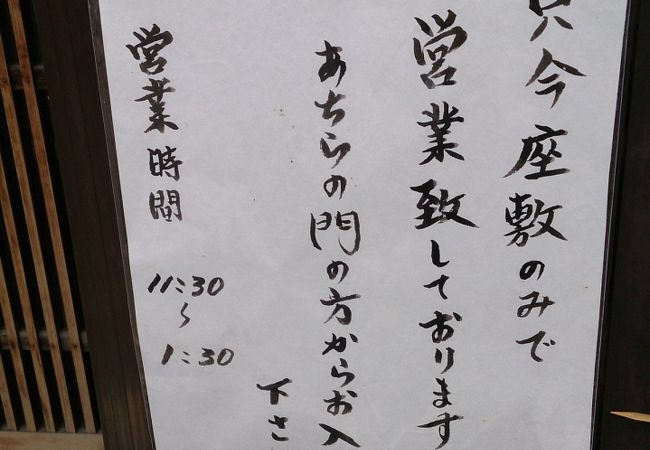 只今座敷のみで
営業致しております
あちらの門の方からお入
下さ
営業時間
11:30
〜
1:30